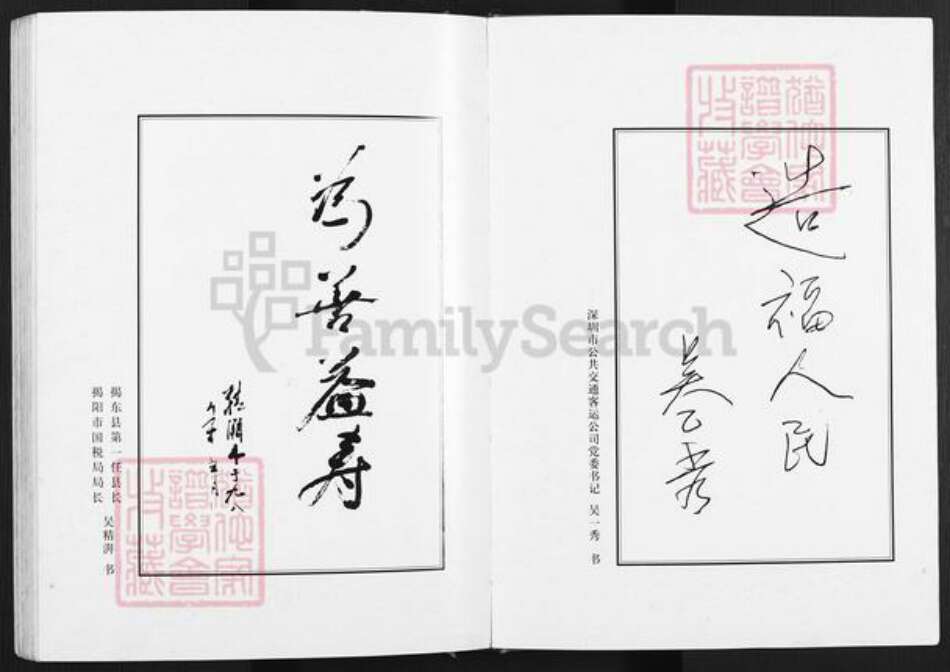 造福人民
吴一秀
深圳市公共交通客运公司党委书记 吴一秀 书
为善益寿
揭东县第一任县长
揭阳市国税局局长 吴精湃 书
FamilySearch
谱学会
收藏